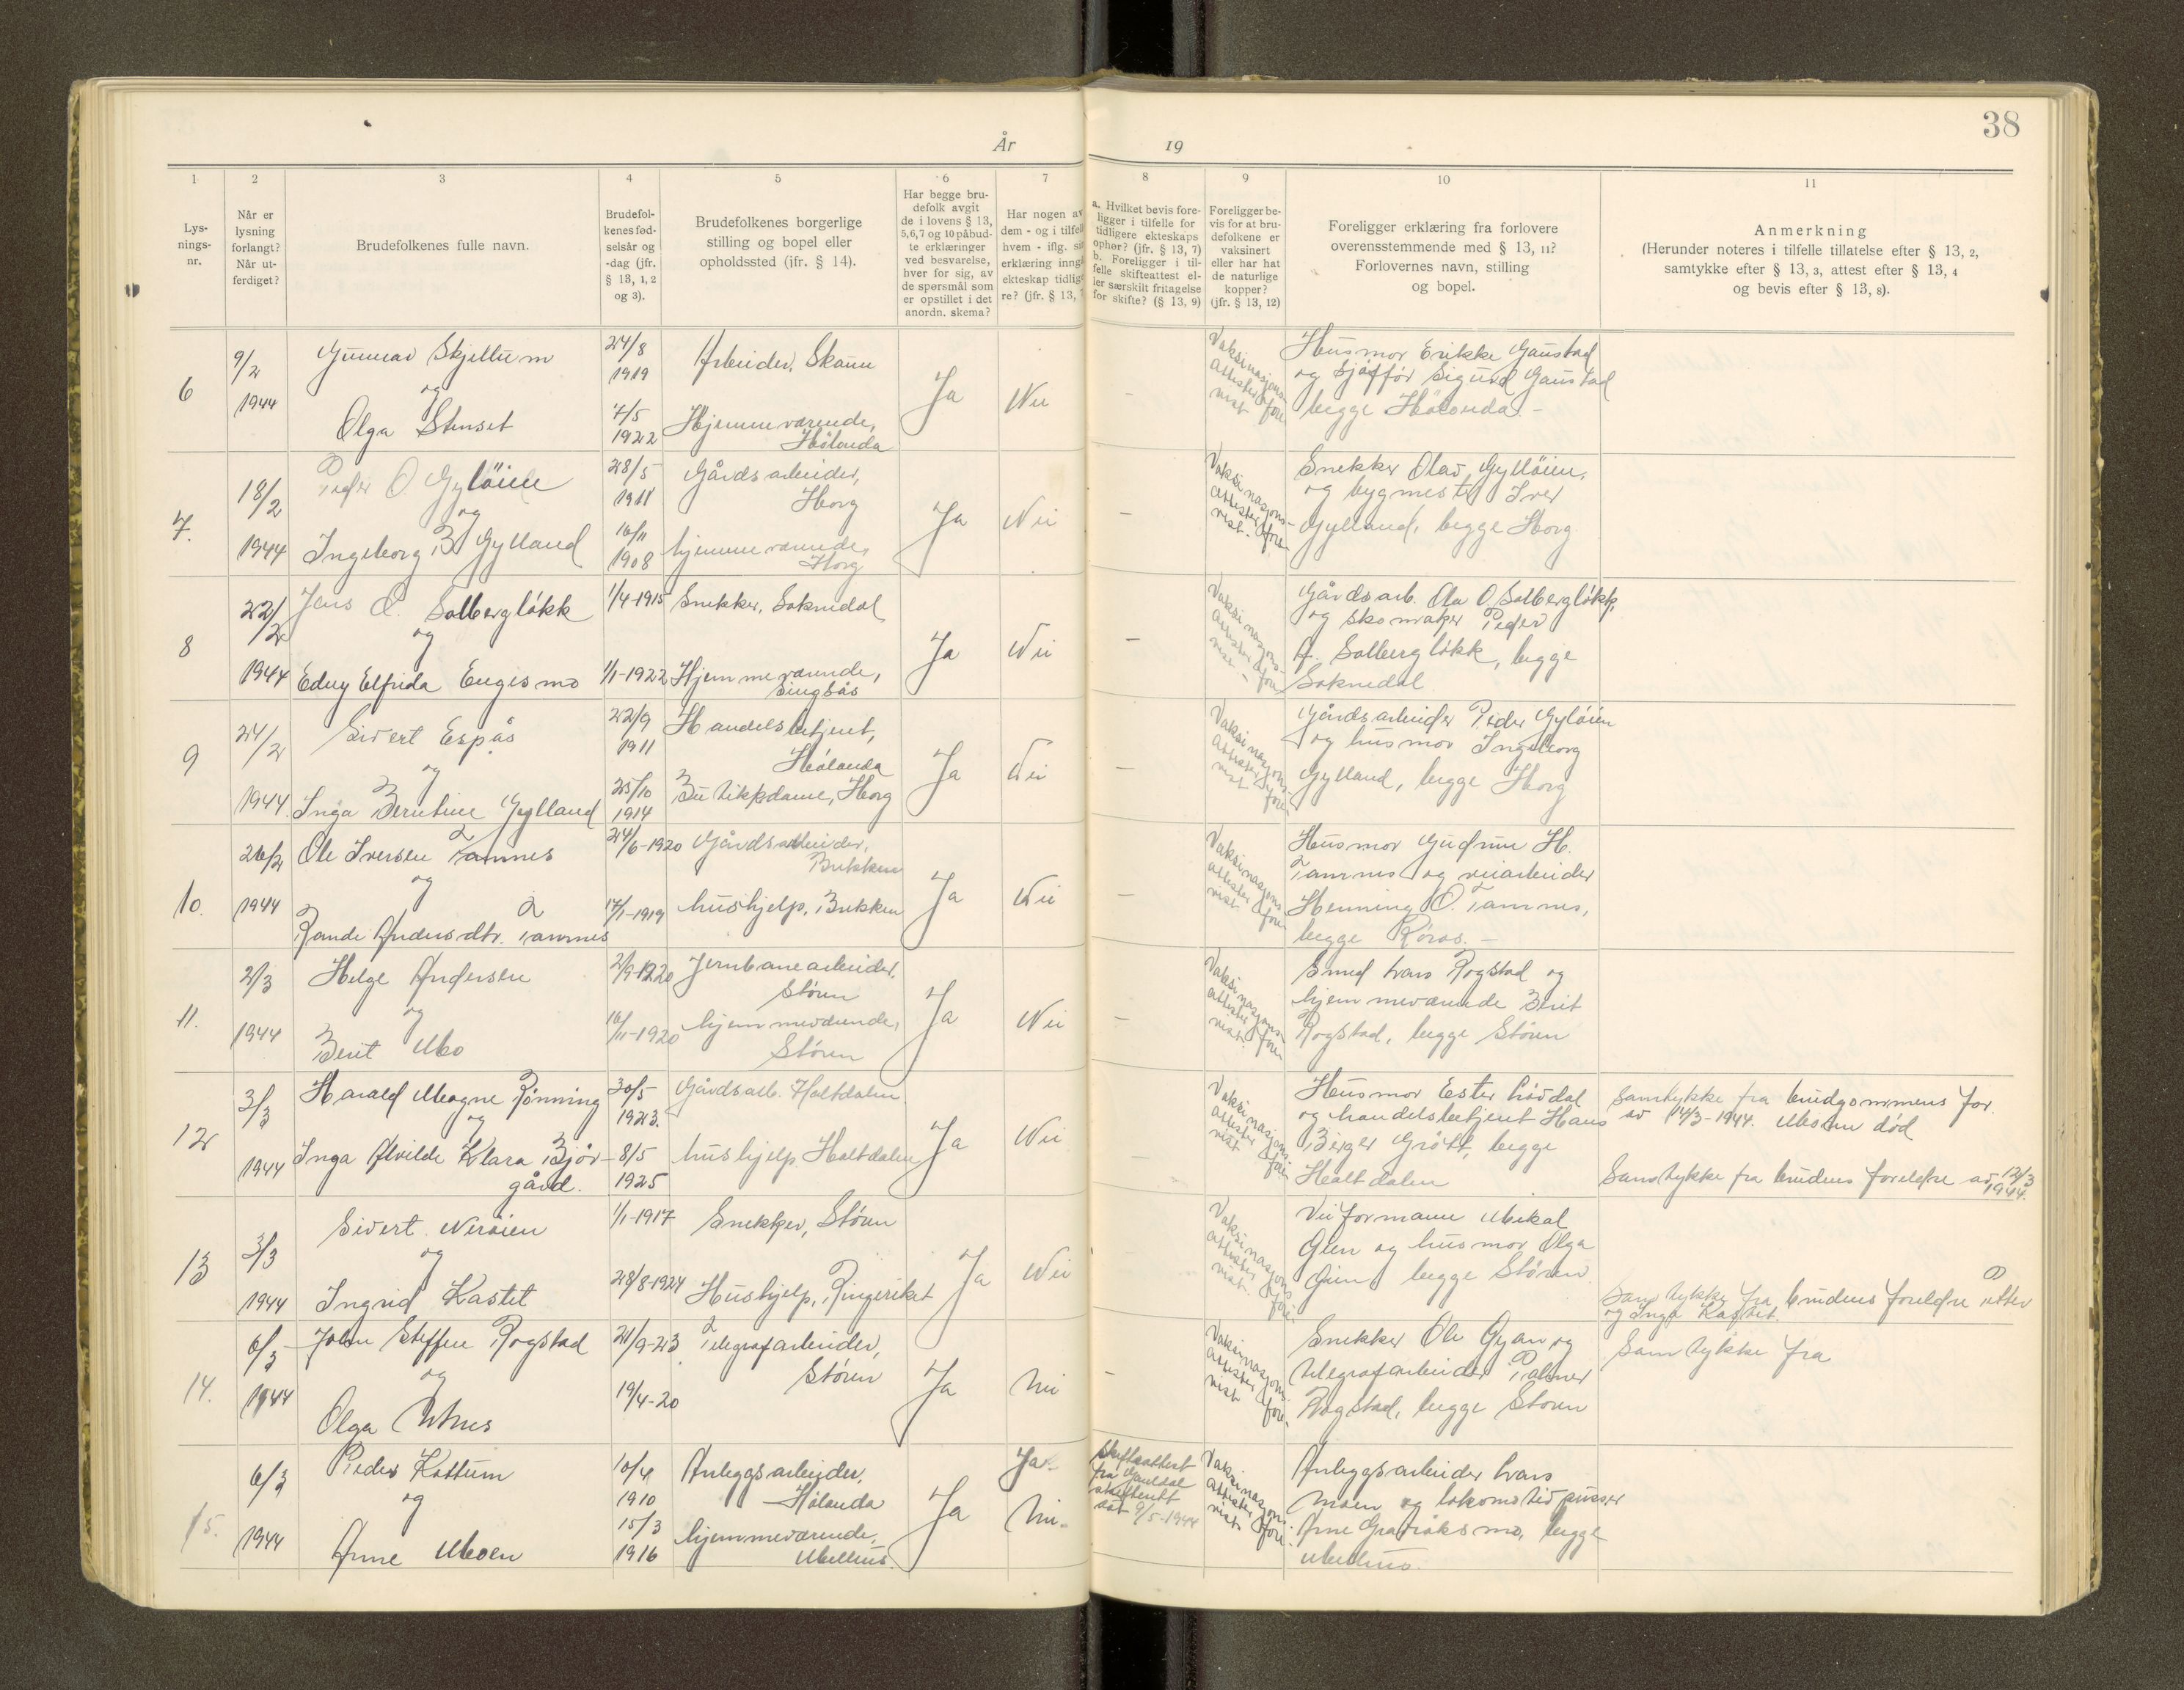 38
År 19
1 2 3 4 5 6 7 8 9 10 11
Lys-
nings-
nr.
Når er
lysning
forlangt?
Når ut-
ferdiget?
Brudefolkenes fulle navn.
Brudefol-
kenes fød-
selsår og
-dag (jfr.
§ 13, 1, 2
og 3).
Brudefolkenes borgerlige
stilling og bopel eller
opholdssted (jfr. § 14).
Har begge bru-
defolk avgit
de i lovens § 13,
5,6,7 og 10 påbud-
te erklæringer
ved besvarelse,
hver for sig, av
de spørsmål som
er opstillet i det
anordn. skema?
Har nogen av
dem - og i tilfelle
hvem - iflg. sin
erklæring inngå
ekteskap tidlige
re? (jfr. § 13, 7
a. Hvilket bevis fore-
ligger i tilfelle for
tidligere ekteskaps
ophør? (jfr. § 13, 7)
b. Foreligger i til-
felle skifteattest el-
ler særskilt fritagelse
for skifte? (§ 13, 9)
Foreligger be-
vis for at bru-
defolkene er
vaksinert
eller har hat
de naturlige
kopper?
(jfr. § 13, 12)
Foreligger erklæring fra forlovere
overensstemmende med § 13, 11?
Forlovernes navn, stilling
og bopel.
Anmerkning
(Herunder noteres i tilfelle tillatelse efter § 13, 2,
samtykke efter § 13, 3, attest efter § 13, 4
og bevis efter § 13, 8).
6
9/2
1944
Gunnar Skjellum
og
Olga Stenset
24/8
1919
7/5
1922
Arbeider, Skaun
Hjemmeværende,
Hølonda
Ja
Nei
-
Vaksinasjons-
attester fore-
vist
Husmor Erikke Gaustad
og sjåfør Sigurd Gaustad
begge Hølonda. -
7.
18/2
1944
Peder O Gylöien
og
Ingeborg B Gylland
28/5
1911
16/11
1908
Gårdsarbeider,
Horg
hjemmeværende,
Horg
Ja
Nei
-
Vaksinasjons-
attester fore-
vist.
Snekker Olav Gyllöien,
og bygmester Iver
Gylland, begge Horg
8
22/2
1944
Jens O. Solbergløkk
og
Edny Elfrida Engesmo
1/4-1915
1/1-1922
Snekker, Soknedal
Hjemmeværende,
Singsås
Ja
Nei
-
Vaksinasjons-
attester fore-
vist -
Gårdsarb. Ola O. Solbergløkk,
og skomaker Peder
A. Solbergløkk, begge
Soknedal
9
24/2
1944.
Sivert Espås
og
Inga Berntine Gylland
22/9
1911
25/10
1914
Handelsbetjent,
Hølonda
Butikkdame, Horg
Ja
Nei
-
Vaksinasjons-
attester fore-
vist
Gårdsarbeider Peder Gylöien
og husmor Ingeborg
Gylland, begge Horg
10.
26/2
1944
Ole Iversen Tamnes
og
Rande Andersdtr. Tamnes
24/6-1920
17/1-1919
Gårdsarbeider,
Brekken
hushjelp, Brekken
Ja
Nei
-
Vaksinasjons-
attester fore-
vist
Husmor Gudrun H.
Tamnes og veiarbeider
Henning O. Tamnes,
begge Røros. -
11.
2/3
1944
Helge Andersen
og
Berit Mo
2/9-1920
16/11-1920
Jernbanearbeider,
Støren
hjemmeværende,
Støren
Ja
Nei
-
Vaksinasjons-
attester fore-
vist.
Smed Lars Rogstad og
hjemmeværende Berit
Rogstad, begge Støren
12
3/3
1944
Harald Magne Rønning
og
Inga Alvilde Klara Bjør-
gård.
30/5
1923.
8/5
1925
Gårdsarb. Haltdalen
hushjelp Haltdalen
Ja
Nei
-
Vaksinasjons-
attester fore-
vist
Husmor Ester Løvdal
og handelsbetjent Hans
Birger Grøtt, begge
Haltdalen
Samtykke fra brudgommens far
av 14/3-1944. Moren død
Samtykke fra brudens foreldre av 12/3
1944.
13
3/3
1944
Sivert Nerøien
og
Ingrid Kastet
1/1-1917
28/8-1924
Snekker, Støren
Hushjelp, Ringeriket
Ja
Nei
-
Vaksinasjons-
attester fore-
vist.
Veiformann Mikal
Glen og husmor Olga
begge Støren.
Samtykke fra brudens foreldre Petter
og Inga Kastet.
14.
6/3
1944
John Steffen Rogstad
og
Olga
21/9-23
19/4-20
Telegrafarbeider,
Støren
Ja
nei
-
Vaksinasjons-
attester fore-
vist
Snekker Ole Gyan og
telegrafarbeider Palmer
Rogstad, begge Støren
Samtykke fra
15.
6/3
1944
Peder Kattum
og
Anne Moen
10/4
1910
15/3
1916
Anleggsarbeider,
Hølonda
hjemmeværende,
Melhus.
Ja
Ja -
nei -
Skifteattest
fra Gauldal
skifterett
dat 9/5-1944
Vaksinasjons-
attester fore-
vist.
Anleggsarbeider Lars
Moen og lokomotivpusser
Arne Gravråksmo, begge
Melhus.